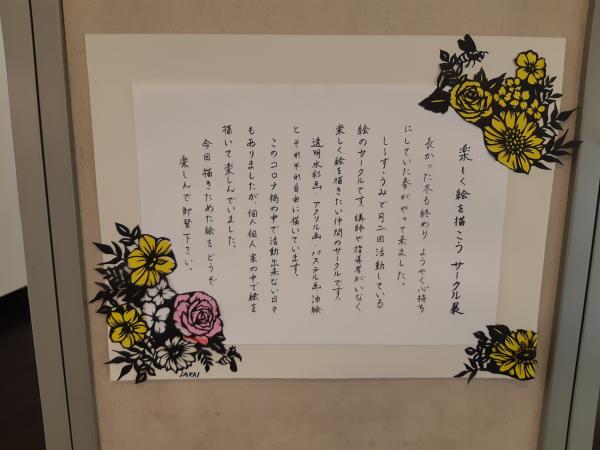 楽しく絵を描こう サークル展
長かった冬も終わり ようやく心待ち
にしていた春がやって来ました。
しーず・うみで月二回活動している
絵のサークルです。講師や指導者がいなく
楽しく絵を描きたい仲間のサークルです。
透明水彩画・アクリル画・パステル画 油絵
とそれぞれ自由に描いています。
このコロナ禍の中で活動出来ない日々
もありましたが、個人個人 家の中で絵を
描いて楽しんでいました。
今回 描きためた絵を どうぞ
楽しんで御覧下さい。
SAKAI